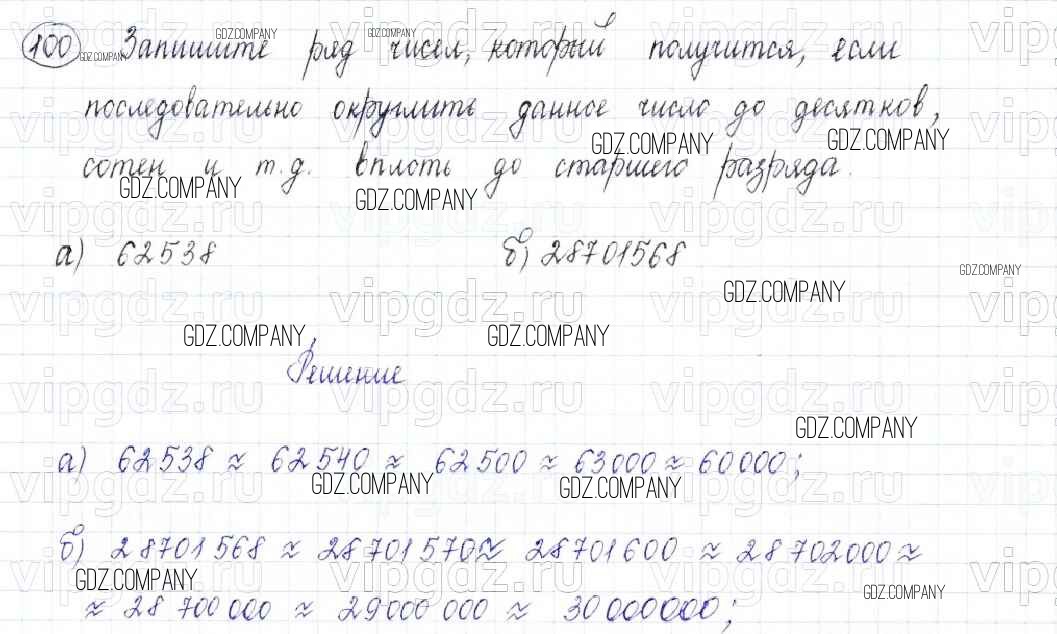 100 Запишите ряд чисел, который получится, если
последовательно округлить данное число до десятков,
сотен и т.д. вплоть до старшего разряда.
а) 62538 б) 28701568
Решение
а) 62538 ≈ 62540 ≈ 62500 ≈ 63000 ≈ 60000;
б) 28701568 ≈ 28701570 ≈ 28701600 ≈ 28702000 ≈
≈ 28 700 000 ≈ 29000 000 ≈ 30 000000;
GDZ.COMPANY
vipgdz.ru